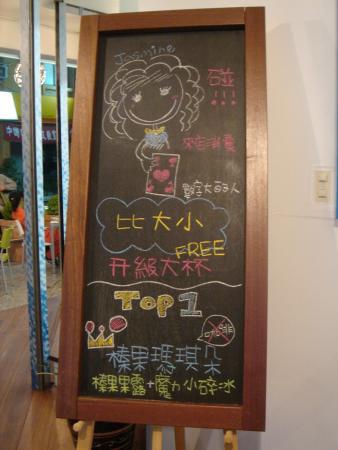 Jasmine
碰!!!
來店消費
數字大百分人
比大小
FREE
升級大杯
Top 1
咖啡
榛果瑪琪朵
榛果果露+魔力小碎冰